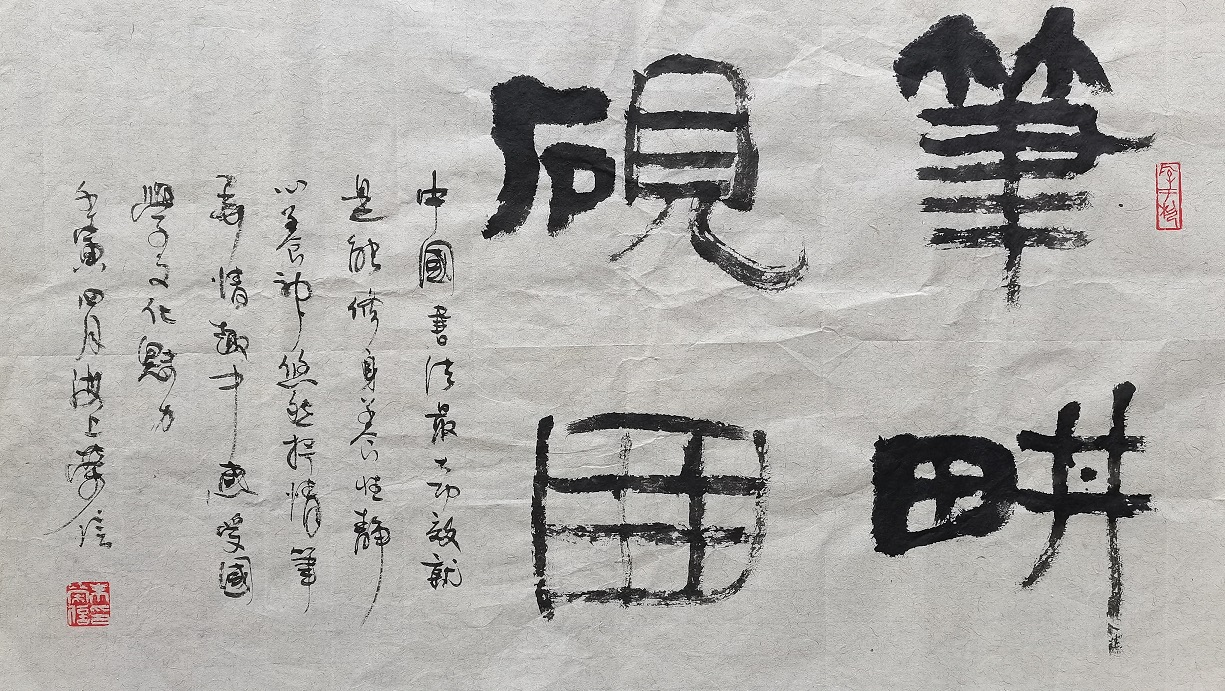 筆畊
硯田
中國書法最大功效就
是能修身養性靜
心養神悠然抒情筆
情趣中感受國
學文化魅力
壬寅四月海上